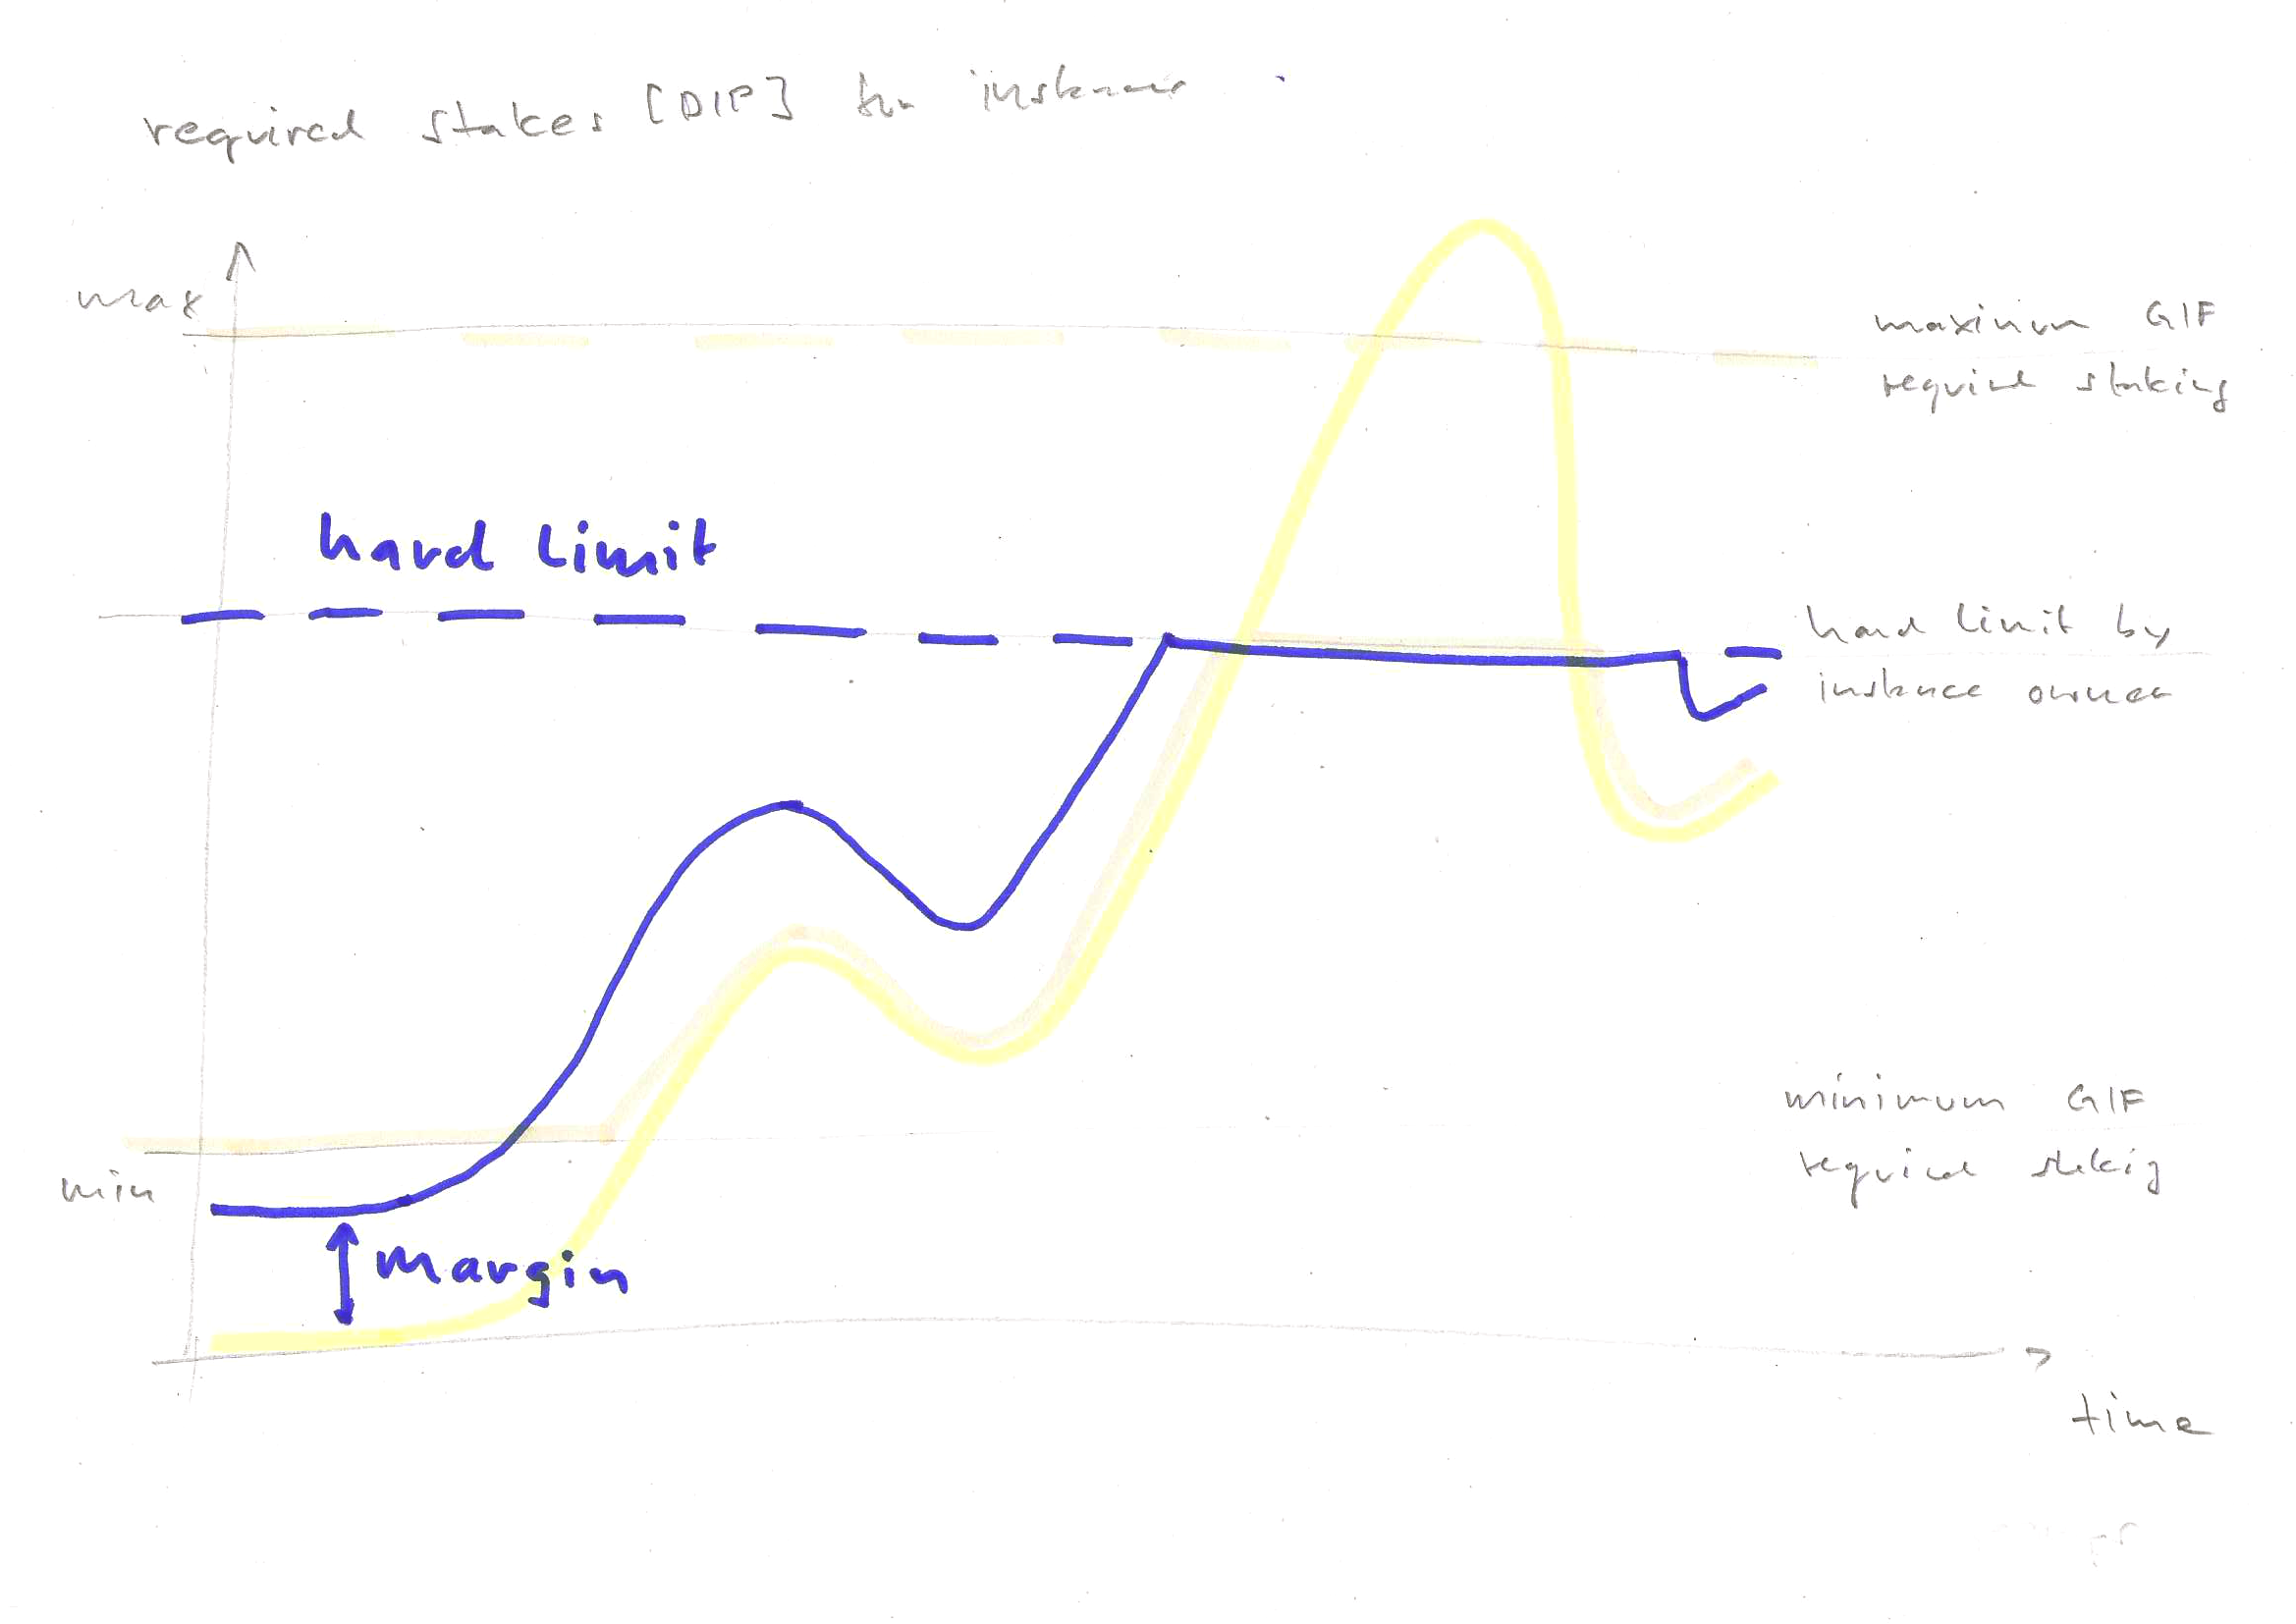 required stakes [DIP] for instance
max
maximum GIF
required staking
hard limit
hard limit by
instance owner
minimum GIF
required staking
min
margin
time